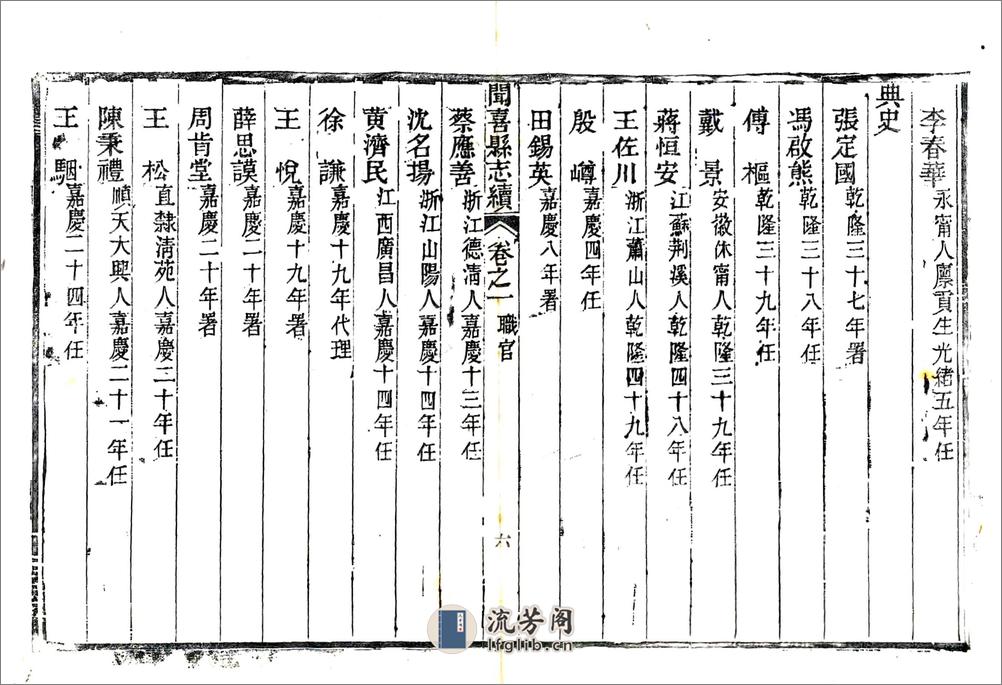 李春華永甯人廪貢生光緒五年任
典史
張定國乾隆三十七年署
馮啟熊乾隆三十八年任
傅樞乾隆三十九年任
戴景安徽休甯人乾隆三十九年任
蔣恒安江蘇荆溪人乾隆四十八年任
王佐川浙江蕭山人乾隆四十九年任
殷嶟嘉慶四年任
田錫英嘉慶八年署
聞喜縣志續 卷之一職官 六
蔡應善浙江德清人嘉慶十三年任
沈名揚浙江山陽人嘉慶十四年任
黄濟民江西廣昌人嘉慶十四年任
徐謙嘉慶十九年代理
王悅嘉慶十九年署
薛思謨嘉慶二十年署
周肯堂嘉慶二十年署
王松直隸清苑人嘉慶二十年任
陳秉禮順天大興人嘉慶二十一年任
王駰嘉慶二十四年任
流芳阁
lfglib.cn